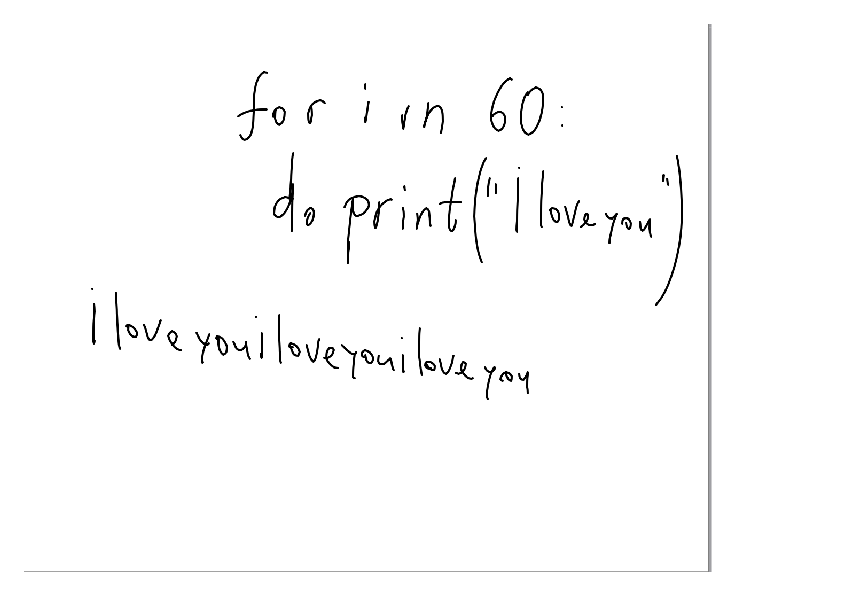 for i in 60:
do print("i love you")
i love you i love you i love you